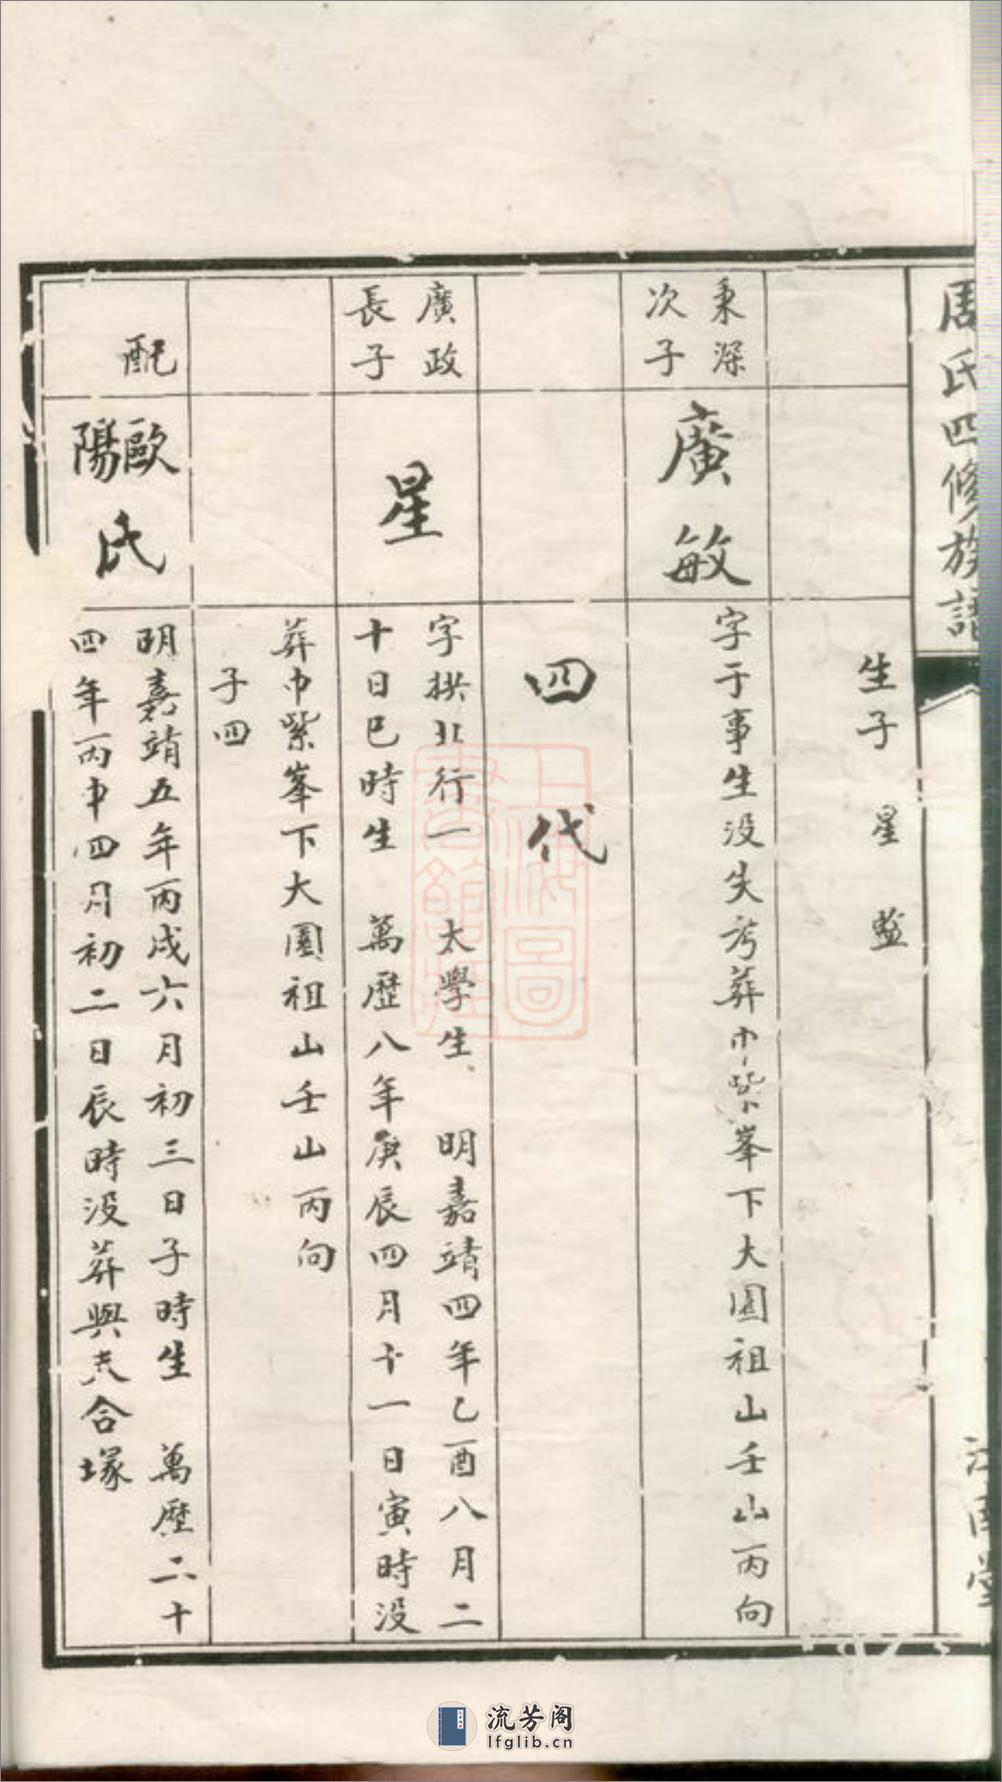 周氏四修族譜
生子 星 監
秉深
次子
廣敏
字于事生没失考葬巾紫峯下大園祖山壬山丙向
四代
廣政
長子
星
字拱北行一 太學生 明嘉靖四年乙酉八月二
十日巳時生 萬歷八年庚辰四月十一日寅時没
葬巾紫峯下大園祖山壬山丙向
子四
配
歐陽氏
明嘉靖五年丙戌六月初三日子時生 萬歷二十
四年丙申四月初二日辰時没葬與夫合塚
上海圖書館藏
流芳阁
lfglib.cn